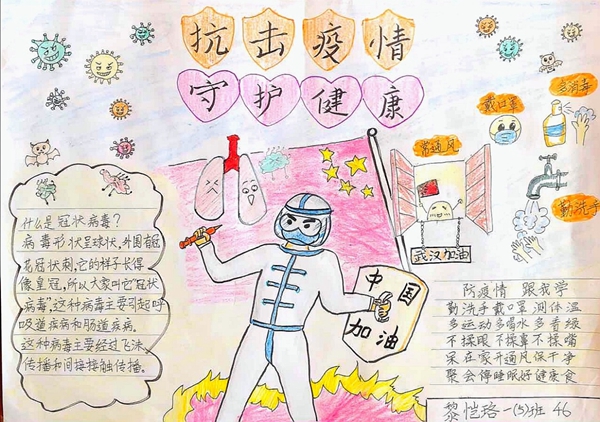 抗击疫情
守护健康
戴口罩
多消毒
常通风
勤洗手
武汉加油
什么是冠状病毒?
病毒形状呈球状,外围有冠
花冠状刺,它的样子长得
像皇冠,所以大家叫它“冠状
病毒”,这种病毒主要引起呼
吸道疾病和肠道疾病。
这种病毒主要经过飞沫,
传播和间接接触传播。
中国
加油
防疫情 跟我学
勤洗手戴口罩测体温
多运动多喝水多看绿
不揉眼不揉鼻不揉嘴
呆在家开通风保干净
聚会停睡眠好健康食
黎恺珞一(5)班 46